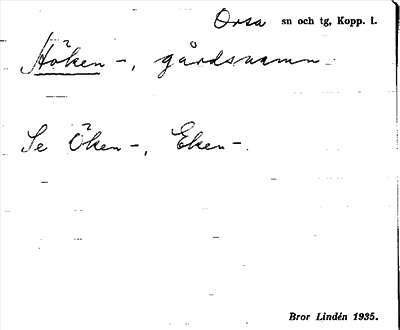 Orsa sn och tg, Kopp. l.
Höken -, gårdsnamn
Se Öken -, Eken -.
Bror Lindén 1935.